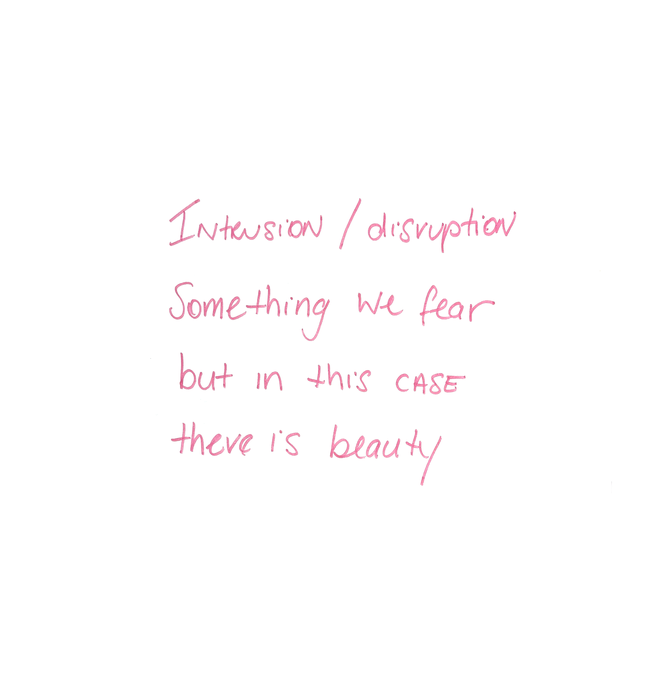 Intension / disruption
Something we fear
but in this CASE
there is beauty